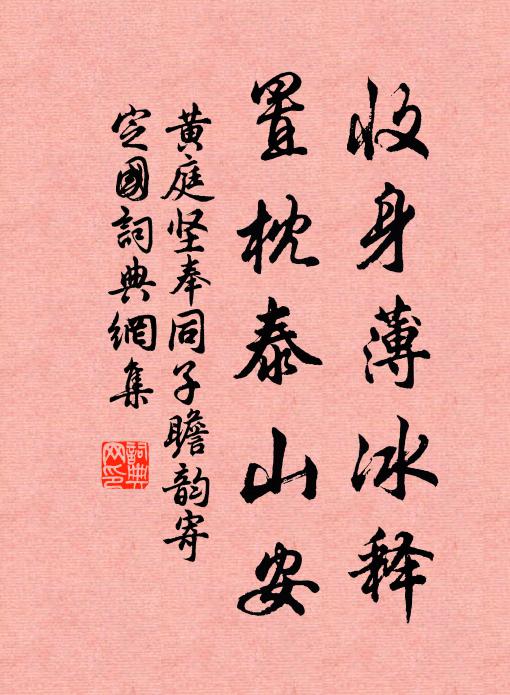 收身薄冰释
置枕泰山安
黄庭坚奉同子瞻韵寄
定國詞典網集
詞典網印